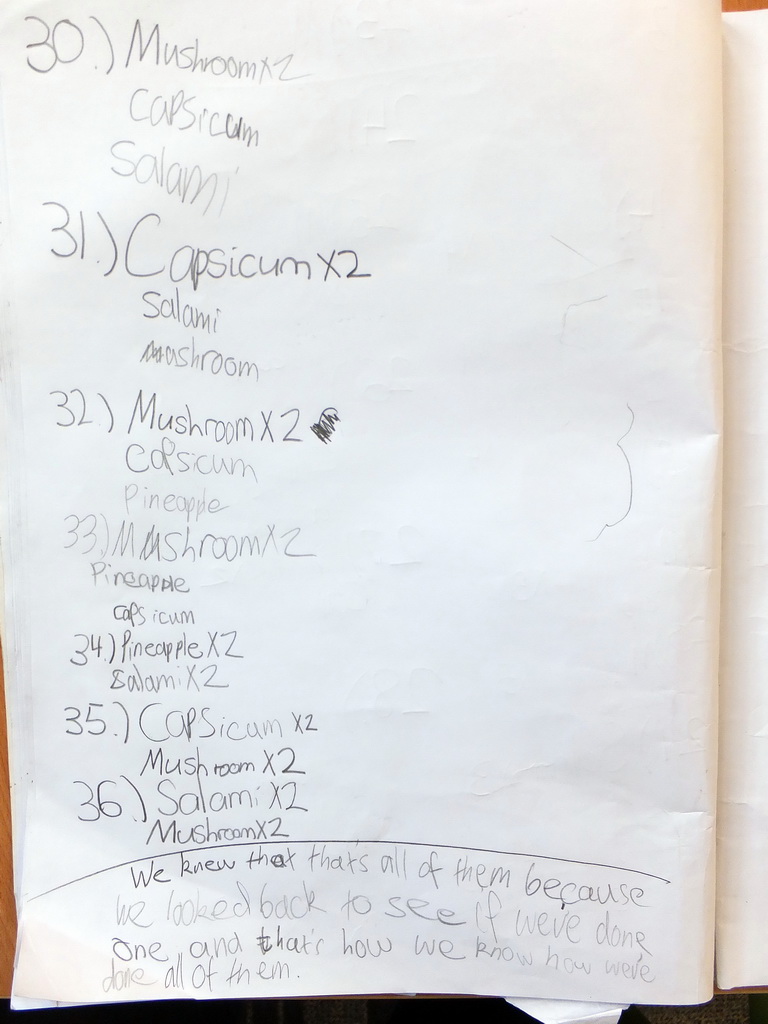 30.) Mushroom x2
Capsicum
Salami
31.) Capsicum x2
Salami
mushroom
32.) Mushroom x2
Capsicum
Pineapple
33.) Mushroom x2
Pineapple
capsicum
34.) Pineapple x2
Salami x2
35.) Capsicum x2
Mushroom x2
36.) Salami x2
Mushroom x2
We knew that that's all of them because
we looked back to see if we've done
one and that's how we know how we've
done all of them.